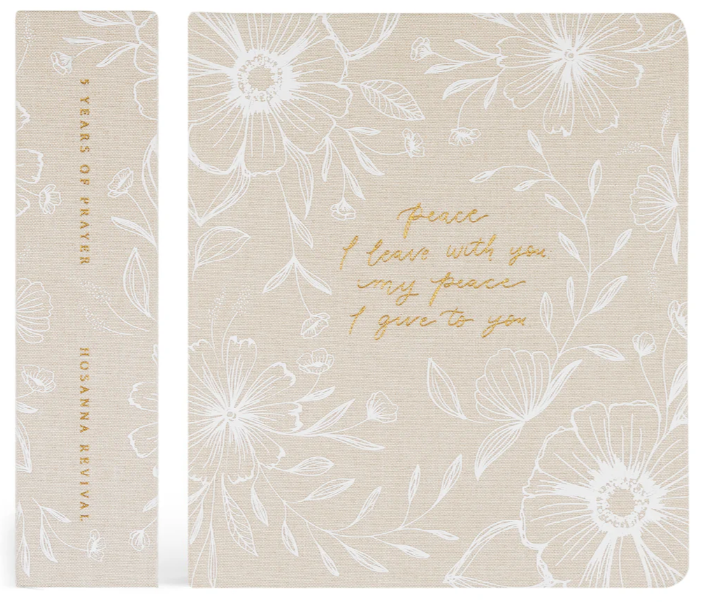 5 YEARS OF PRAYER
HOSANNA REVIVAL
peace
I leave with you
my peace
I give to you